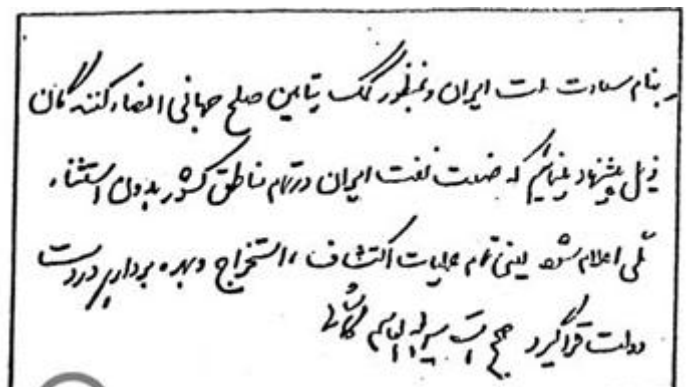 بنام سعادت ملت ایران و بمنظور کمک بتامین صلح جهانی امضاء کنندگان
ذیل پیشنهاد مینمائیم که صنعت نفت ایران در تمام مناطق کشور بدون استثناء
ملی اعلام شود یعنی تمام عملیات اکتشاف، استخراج و بهره برداری در دست
دولت قرار گیرد